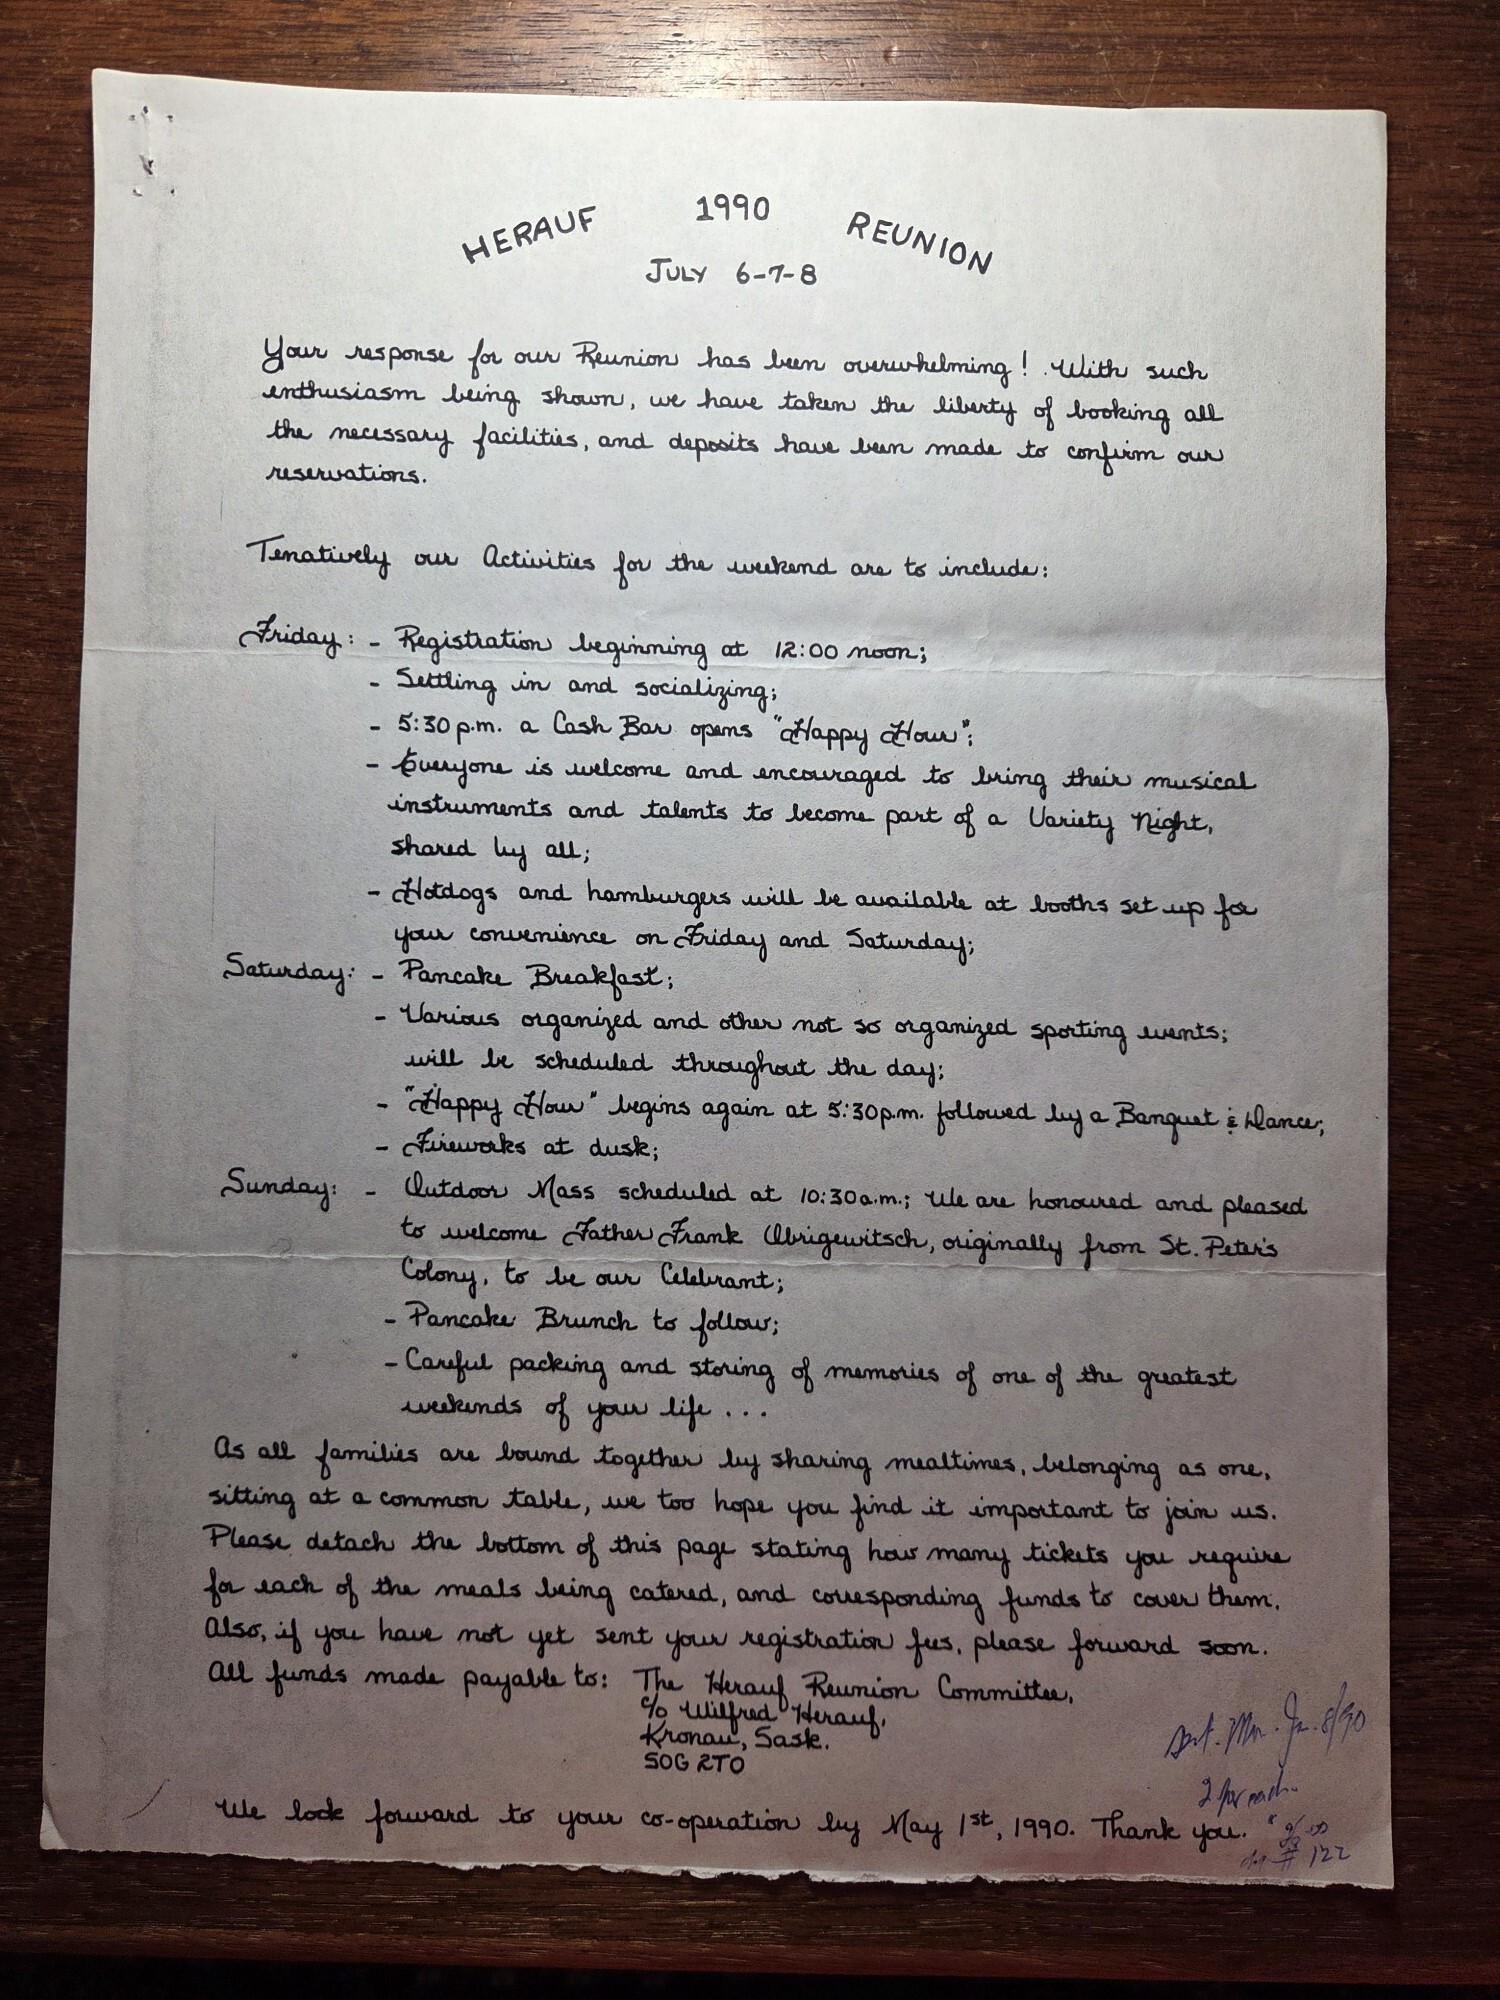 HERAUF 1990 REUNION
JULY 6-7-8
Your response for our Reunion has been overwhelming! With such
enthusiasm being shown, we have taken the liberty of booking all
the necessary facilities, and deposits have been made to confirm our
reservations.
Tenatively our Activities for the weekend are to include:
Friday: - Registration beginning at 12:00 noon;
- Settling in and socializing;
- 5:30 p.m. a Cash Bar opens "Happy Hour";
- Everyone is welcome and encouraged to bring their musical
instruments and talents to become part of a Variety Night,
shared by all;
- Hotdogs and hamburgers will be available at booths set up for
your convenience on Friday and Saturday;
Saturday: - Pancake Breakfast;
- Various organized and other not so organized sporting events;
will be scheduled throughout the day;
- "Happy Hour" begins again at 5:30p.m. followed by a Banquet & Dance;
- Fireworks at dusk;
Sunday: - Outdoor Mass scheduled at 10:30a.m.; We are honoured and pleased
to welcome Father Frank Obrigewitsch, originally from St. Peter's
Colony, to be our Celebrant;
- Pancake Brunch to follow;
- Careful packing and storing of memories of one of the greatest
weekends of your life ...
As all families are bound together by sharing mealtimes, belonging as one,
sitting at a common table, we too hope you find it important to join us.
Please detach the bottom of this page stating how many tickets you require
for each of the meals being catered, and corresponding funds to cover them.
Also, if you have not yet sent your registration fees, please forward soon.
All funds made payable to: The Herauf Reunion Committee,
c/o Wilfred Herauf,
Kronau, Sask.
S0G 2T0
8/90
2 for each.
We look forward to your co-operation by May 1st, 1990. Thank you.
# 122